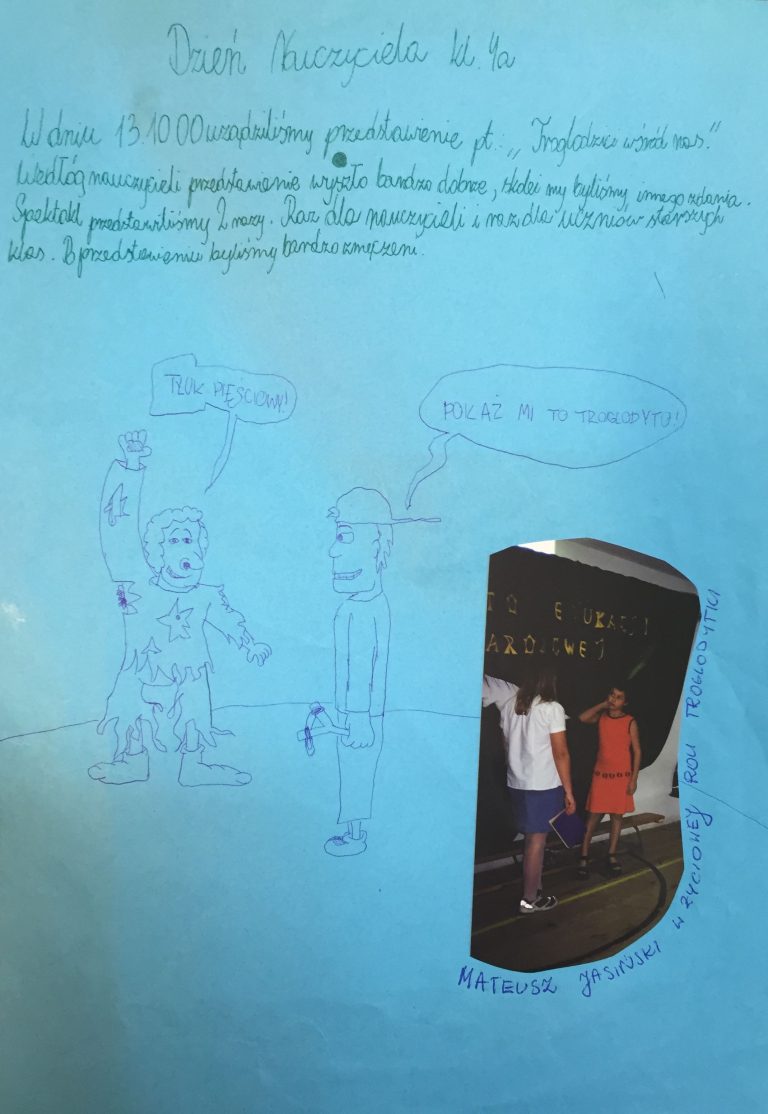 Dzień Nauczyciela kl. 4a
W dniu 13.10.00 urządziliśmy przedstawienie pt.: „Troglodzi wśród nas."
Wedłóg nauczycieli przedstawienie wyszło bardzo dobrze, zkolei my byliśmy innego zdania.
Spektakl przedstawiliśmy 2 razy. Raz dla nauczycieli i raz dla uczniów starszych
klas. P przedstawieniu byliśmy bardzo zmęczeni.
TŁUK PIĘŚCIOWY!
POKAŻ MI TO TROGLODYTO!
TO EDUKACJI
ARDZOWEJ
MATEUSZ JASIŃSKI W ŻYCIOWEJ ROLI TROGLODYTKI